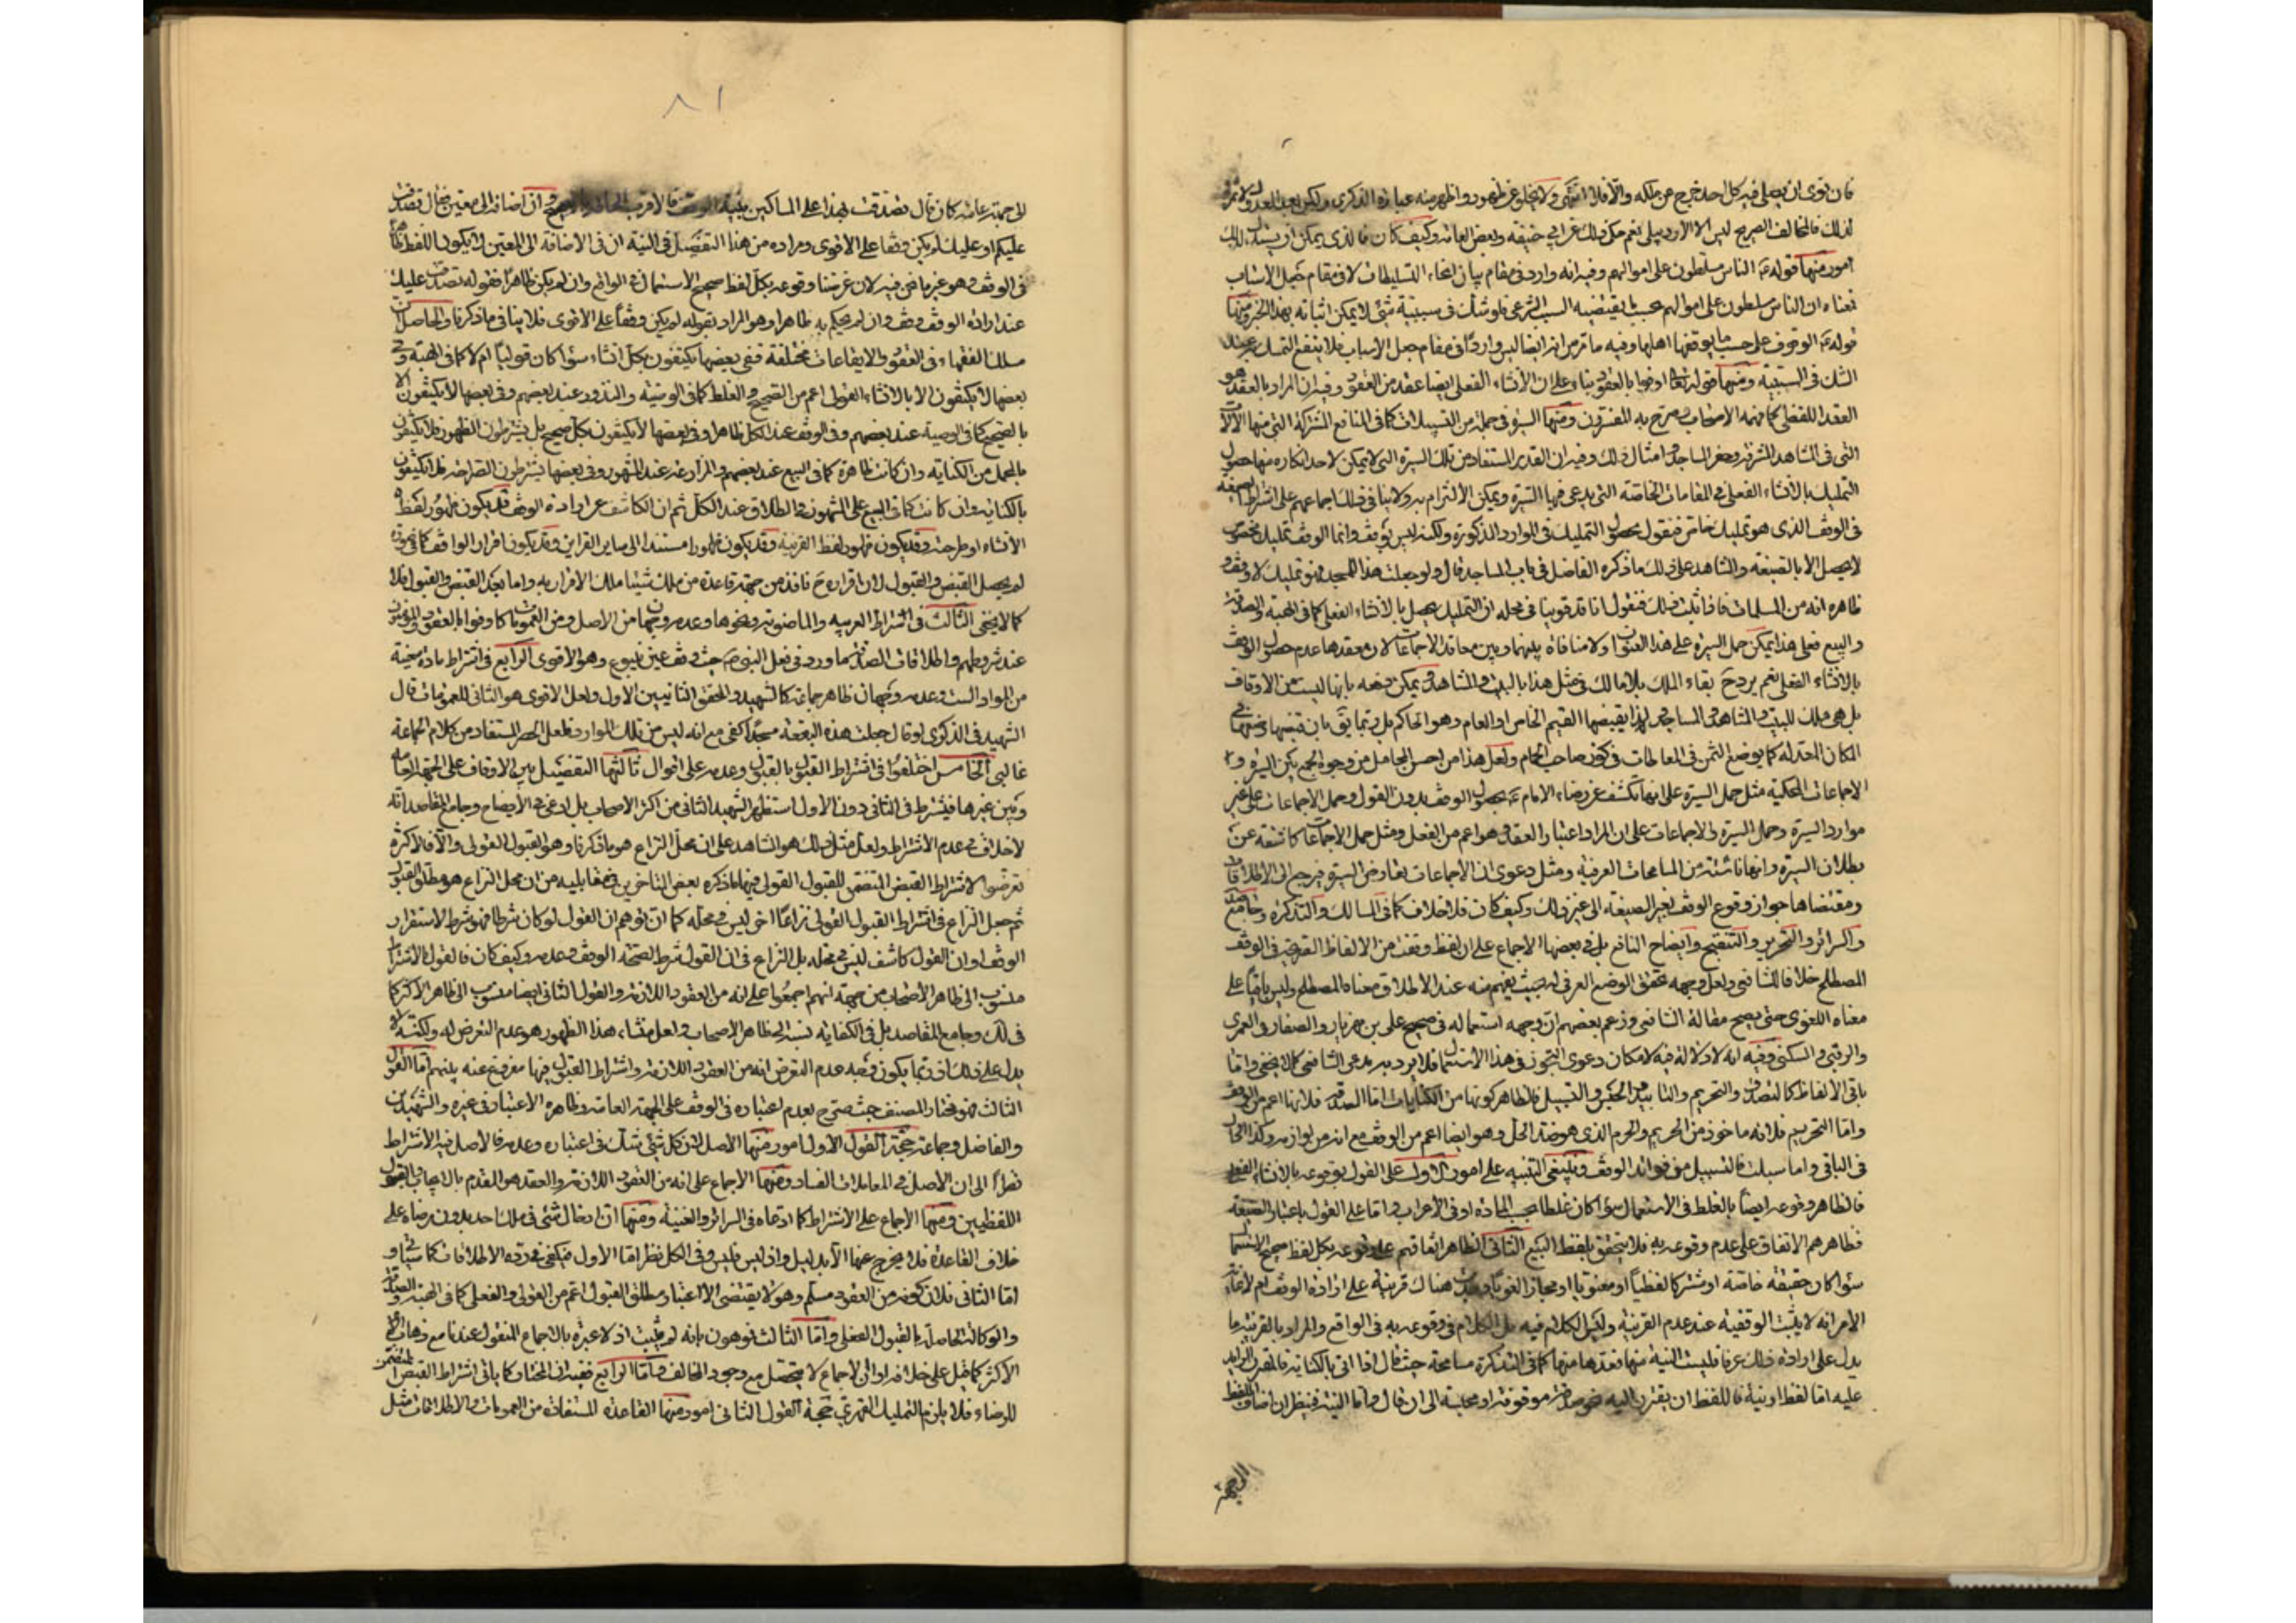 فان نوى ان يصلى فيه كل احد خرج عن ملكه والّا فلا انتهى ولا يخلو عن ظهور واظهر منه عبارة الذكرى ولكن بعيد
لذلك فالمخالف الصريح ليس الا الاردبيلى نعم حكى ذلك عن ابى حنيفة وبعض العامة وكيف كان فالذى يمكن ان يستدل لذلك
امور منها قوله ع الناس مسلطون على اموالهم وفيه انه وارد فى مقام بيان انحاء التسلطات لا فى مقام جعل الاسباب
فمعناه ان الناس مسلطون على اموالهم بحسب ما يقتضيه السبب الشرعى فلو شك فى سببية شئ لا يمكن اثباته بهذا الخبر ومنها
قوله ع الوقوف على حسب ما يوقفها اهلها وفيه ما تر من انه ايضا ليس واردا فى مقام جعل الاسباب فلا ينفع التمسك به عند
الشك فى السببية ومنها قوله تعالى اوفوا بالعقود بناء على ان الانشاء الفعلى ايضا عقد من العقود وفيه ان المراد بالعقد هو
العقد اللفظى كما فهمه الاصحاب وصرح به المفسرون ومنها السيرة فى جملة من التسبيلات كما فى المنافع المشتركة التى منها الآلات
التى فى المشاهد المشرفة وبعض المساجد وامثال ذلك وفيه ان القدر المستفاد من تلك السيرة التى لا يمكن لاحد انكاره منها حصول
التمليك بالانشاء الفعلى فى المقامات الخاصة التى يدعى فيها السيرة ويمكن الالتزام به ولا ينافى ذلك اجماعهم على اشتراط الصيغة
فى الوقف الذى هو تمليك خاص فنقول بحصول التمليك فى الموارد المذكورة ولكنه ليس بوقف وانما الوقف تمليك مخصوص
لا يحصل الا بالصيغة والشاهد على ذلك ما ذكره الفاضل فى باب المساجد قال ولو جعلت هذا للمسجد فهو تمليك لا وقف و
ظاهره انه من المسلمات فاذا ثبت ذلك فنقول انا قد قوينا فى محله ان التمليك يحصل بالانشاء الفعلى كما فى الهبة والصدقة
والبيع فعلى هذا يمكن حمل السيرة على هذا العنوان ولا منافاة بينها وبين معاقد الاجماعات لان معقدها عدم حصول الوقف
بالانشاء الفعلى نعم يرد ح بقاء الملك بلا مالك فى مثل هذا بالبيت والمشاهد ويمكن دفعه بانها ليست من الاوقاف
بل هى ملك للبيت والمشاهد والمساجد ولهذا يقبضها القيم الخاص او العام وهو الحاكم بل ربما يق بان قبضها وضعها فى
المكان المعد له كما يوضع الثمن فى المعاطات فى كوز صاحب الحمام ولعل هذا من احسن المحامل من وجوه الجمع بين السيرة و
الاجماعات المحكية مثل حمل السيرة على انها تكشف عن رضاء الامام ع بحصول الوقف بدون القول وحمل الاجماعات على غير
موارد السيرة وحمل السيرة والاجماعات على ان المراد اعتبار العقد وهو اعم من الفعل ومثل حمل الاجماعات كاشفة عن
بطلان السيرة وانها ناشئة من المسامحات العرفية ومثل دعوى ان الاجماعات تعارض السيرة فيرجع الى الاطلاقات
ومقتضاها جواز وقوع الوقف بغير الصيغة الى غير ذلك وكيف كان فلا خلاف كما فى المسالك والتذكرة وجامع
والسرائر والتحرير والتنقيح وايضاح النافع بل فى بعضها الاجماع على ان لفظ وقفت من الالفاظ الصريحة فى الوقف
المصطلح خلافا للشافعى ولعل وجهه تحقق الوضع العرفى له بحيث يفهم منه عند الاطلاق معناه المصطلح وليس باقيا على
معناه اللغوى حتى يصح مقالة الشافعى وزعم بعضهم ان وجهه استعماله فى صحيح على بن مهزيار والصفار وفى العمرى
والرقبى والسكنى وفيه انه لا دلالة فيه لامكان دعوى التجوز فى هذا الاستعمال فلا يرد به مدعى الشافعى كما لا يخفى واما
باقى الالفاظ كالتصدق والتحريم والتابيد والحبس والتسبيل فالظاهر كونها من الكنايات اما الصدقة فلانها اعم من الوقف
واما التحريم فلانه ماخوذ من الحريم والحرم الذى هو ضد الحل وهو ايضا اعم من الوقف مع انه من لوازمه وكذا الحال
فى الباقى واما سبلت فالتسبيل من فوائد الوقف وينبغى التنبيه على امور الاول على القول بوقوعه بالانشاء الفعلى
فالظاهر وقوعه ايضا بالغلط فى الاستعمال سواء كان غلطا بحسب المادة او فى الاعراب واما على القول باعتبار الصيغة
فظاهرهم الاتفاق على عدم وقوعه به فلا يتحقق بلفظ البيع الثانى الظاهر اتفاقهم على وقوعه بكل لفظ صحيح الاستعمال
سواء كان حقيقة خاصة او مشتركا لفظيا او معنويا او مجازا لغويا هناك قرينة على ارادة الوقف ام لا غاية
الامر انه لا يثبت الوقفية عند عدم القرينة وليس الكلام فيه بل الكلام فى وقوعه به فى الواقع والمراد بالقرينة ما
يدل على ارادة ذلك عرفا فليست النية منها فعدها منها كما فى التذكرة مسامحة حيث قال اذا اتى بالكناية فالمقترن الزايد
عليه اما لفظ او نية فاللفظ ان يقترن اليه صدقة موقوفة او محبسة الى ان قال واما النية فينظر ان اضاف اللفظ
٨١
الى جهة عامة كان قال تصدقت بهذا على المساكين بنية الوقف فالاقرب وان اضاف الى معين فقال تصدقت
عليكم او عليك لم يكن وقفا على الاقوى ومراده من هذا التفصيل فى النية ان فى الاضافة الى المعين لا يكون اللفظ ظاهرا
فى الوقف وهو غير ما نحن فيه لان غرضنا وقوعه بكل لفظ صحيح الاستعمال فى الواقع وان لم يكن ظاهرا فقوله تصدقت عليك
عند ارادة الوقف وقف وان لم يحكم به ظاهرا وهو المراد بقوله لم يكن وقفا على الاقوى فلا ينافى ما ذكرنا والحاصل ان
مسلك الفقهاء فى العقود والايقاعات مختلفة ففى بعضها يكتفون بكل انشاء سواء كان قوليا ام لا كما فى الهبة وفى
بعضها لا يكتفون الا بالانشاء القولى اعم من الصحيح والغلط كما فى الوصية والنذور عند بعضهم وفى بعضها لا يكتفون الا
بالصحيح كما فى الوصية عند بعضهم وفى الوقف عند الكل ظاهرا وفى بعضها لا يكتفون بكل صحيح بل يشترطون الظهور فلا يكتفون
بالمجمل من الكناية وان كانت ظاهرة كما فى البيع عند بعضهم والمزارعة عند المشهور وفى بعضها يشترطون الصراحة فلا يكتفون
بالكناية وان كانت كما فى البيع على المشهور والطلاق عند الكل ثم ان الكاشف عن ارادة الوقف قد يكون ظهور لفظ
الانشاء او صراحته وقد يكون ظهور لفظ القرينة وقد يكون ظهورا مستندا الى ساير القراين وقد يكون اقرار الواقف كما فى صورة
لم يحصل القبض والقبول لان اقراره ح نافذ من جهة قاعدة من ملك شيئا ملك الاقرار به واما بعد القبض والقبول فلا
كما لا يخفى الثالث فى اشتراط العربية والماضوية ونحوها وعدمه وجهان من الاصل ومن العمومات كاوفوا بالعقود والمؤمنون
عند شروطهم واطلاقات الصدقة وما ورد فى فعل النبى ص حيث وقف عين ينبوع وهو الاقوى الرابع فى اشتراط مادة معينة
من المواد الست وعدمه وجهان ظاهر جماعة كالشهيد والمحقق الثانيين الاول ولعل الاقوى هو الثانى للعمومات قال
الشهيد فى الذكرى لو قال جعلت هذه البقعة مسجدا كفى مع انه ليس من تلك الموارد فلعل الحصر المستفاد من كلام الجماعة
غالبى الخامس اختلفوا فى اشتراط القبول بالقبول وعدمه على اقوال ثالثها التفصيل بين الاوقاف على الجهة العامة
وبين غيرها فيشترط فى الثانى دون الاول استظهر الشهيد الثانى من اكثر الاصحاب بل ادعى فى الايضاح وجامع المقاصد انه
لا خلاف فى عدم الاشتراط ولعل مثل ذلك هو الشاهد على ان محل النزاع هو ما ذكرنا وهو القبول القولى والا فالاكثر
تعرضوا لاشتراط القبض المتضمن للقبول القولى فيهما ما ذكره بعض المتاخرين فى مقابليه من ان محل النزاع هو مطلق القبول
ثم جعل النزاع فى اشتراط القبول القولى نزاعا اخر ليس فى محله كما ان توهم ان القول لو كان شرطا فهو شرط لاستقرار
الوقف او ان القول كاشف ليس فى محله بل النزاع فى ان القول شرط لصحة الوقف وعدمه وكيف كان فالقول بالاشتراط
منسوب الى ظاهر الاصحاب من جهة انهم اجمعوا على انه من العقود اللازمة والقول الثانى ايضا منسوب الى ظاهر الاكثر كما
فى لك وجامع المقاصد بل فى الكفاية نسبه الى ظاهر الاصحاب ولعل منشاء هذا الظهور هو عدم التعرض له ولكنه لا
يدل على ذلك اذ ربما يكون وجه عدم التعرض انه من العقود اللازمة واشتراط القبول فيها مفروغ عنه بينهم اما القول
الثالث فهو مختار المصنف حيث صرح بعدم اعتباره فى الوقف على الجهة العامة وظاهره الاعتبار فى غيره والشهيدين
والفاضل وجماعة حجة القول الاول امور منها الاصل لان كل شئ شك فى اعتباره وعدمه فالاصل فيه الاشتراط
نظرا الى ان الاصل فى المعاملات الفساد ومنها الاجماع على انه من العقود اللازمة والعقد هو المقدم بالايجاب والقبول
اللفظيين ومنها الاجماع على الاشتراط كما ادعاه فى السرائر والغنية ومنها ان ادخال شئ فى ملك احد بدون رضاه على
خلاف القاعدة فلا يخرج عنها الا بدليل واذ ليس فليس وفى الكل نظر اما الاول فيكفى فى رده الاطلاقات كما سياتى و
اما الثانى فلان كونه من العقود مسلم وهو لا يقتضى الا اعتبار مطلق القبول اعم من القولى والفعلى كما فى الهبة والصدقة
والوكالة الحاصلة بالقبول الفعلى واما الثالث فوهون بانه لم يثبت اذ لا عبرة بالاجماع المنقول عندنا مع ذهاب
الاكثر كما قيل على خلافه اذ الاجماع لا يتحصل مع وجود المخالف واما الرابع ففيه ان المختار كما ياتى اشتراط القبض المتضمن
للرضاء فلا يلزم التمليك القهرى حجة القول الثانى امور منها القاعدة المستفادة من العمومات والاطلاقات مثل